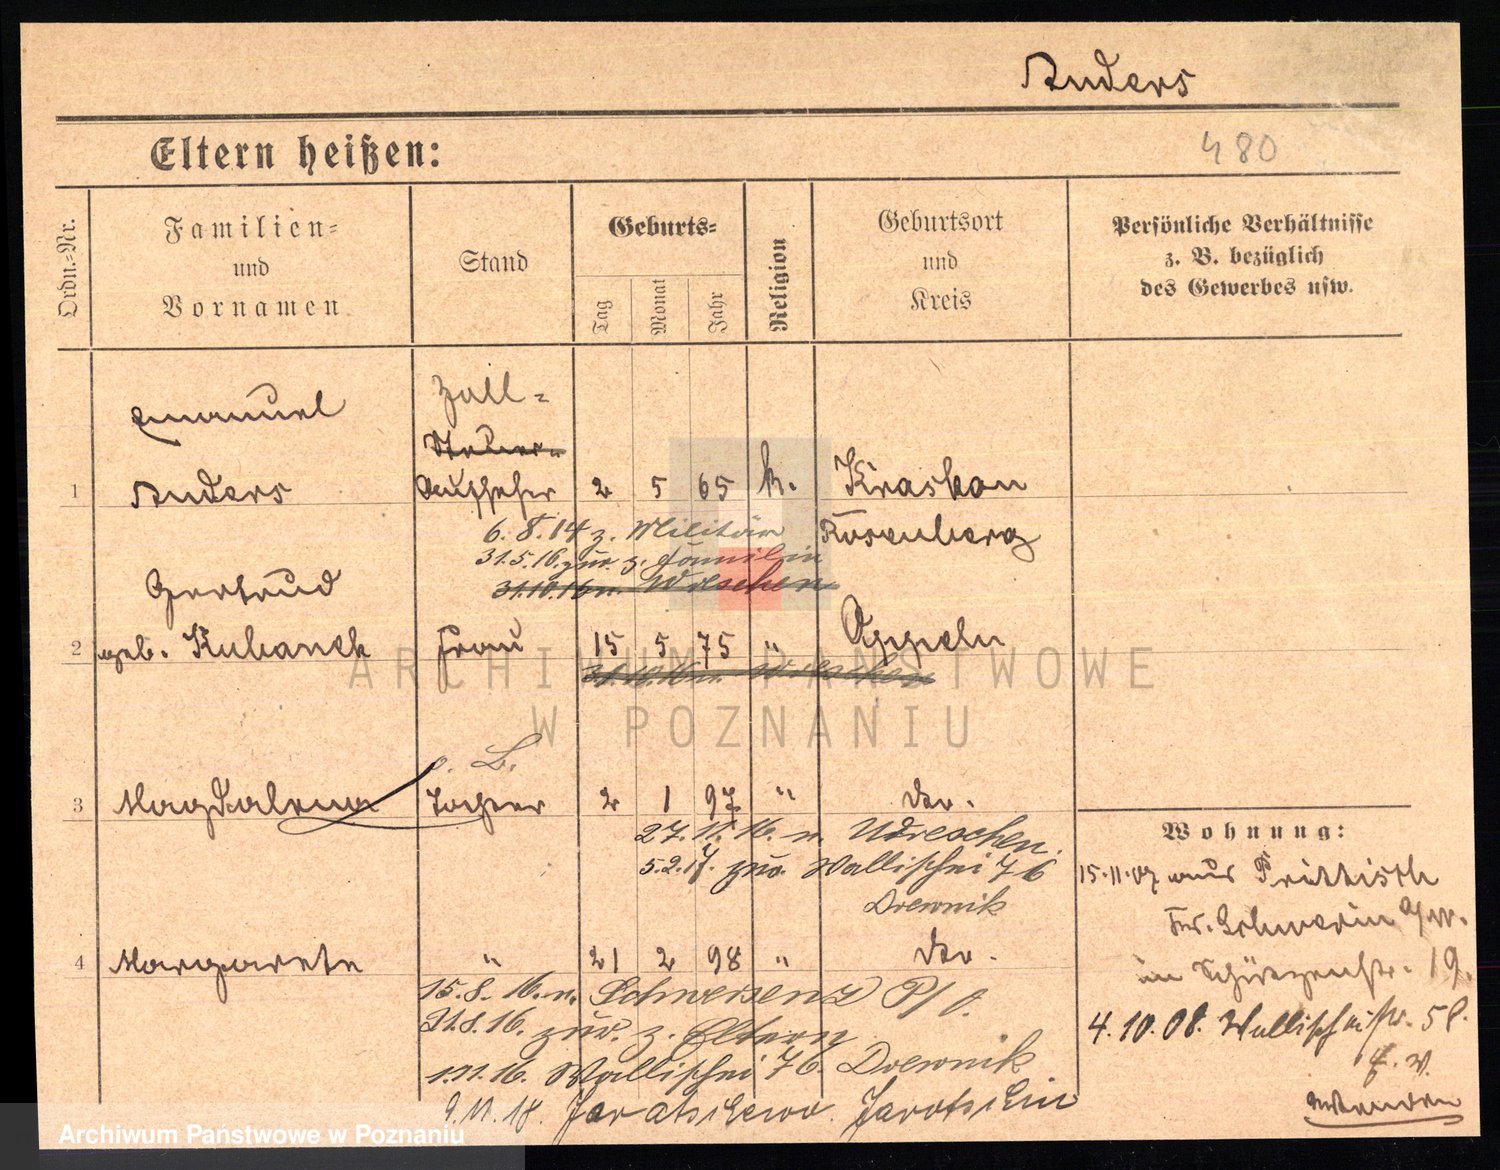 Anders
Eltern heißen:
480
Ordn.-Nr.
Familien-
und
Vornamen
Stand
Geburts-
Tag
Monat
Jahr
Religion
Geburtsort
und
Kreis
Persönliche Verhältnisse
z. B. bezüglich
des Gewerbes usw.
Emanuel
Zoll-
Steuer-
1 Anders Aufseher 2 5 65 k. Kraskau
Rosenberg
6. 8. 14 z. Militär
31.5.16. zur. z. Familie
31.10.16 n. Wreschen
Gertrud
2 geb. Kubanek Frau 15 5 75 " Oppeln
31.10.16 n. Wreschen
o. B.
3 Magdalena Tochter 2 1 97 " do.
27. 11. 16. n. Wreschen.
5.2.17. zur. Wallischei 76
Drewnik
4 Margarete " 21 2 98 " do.
15. 8. 16. n. Schwersenz P/O.
31.8.16. zur. z. Eltern
1.11.16. Wallischei 76. Drewnik
9. 11. 18. Jaratschewo. Jarotschin
Wohnung:
15.11.07 aus Prittisch
Kr. Schwerin a/W.
in Schützenstr. 19.
4. 10. 08. Wallischeistr. 58.
Wenden
ARCHIWUM PAŃSTWOWE
W POZNANIU
Archiwum Państwowe w Poznaniu